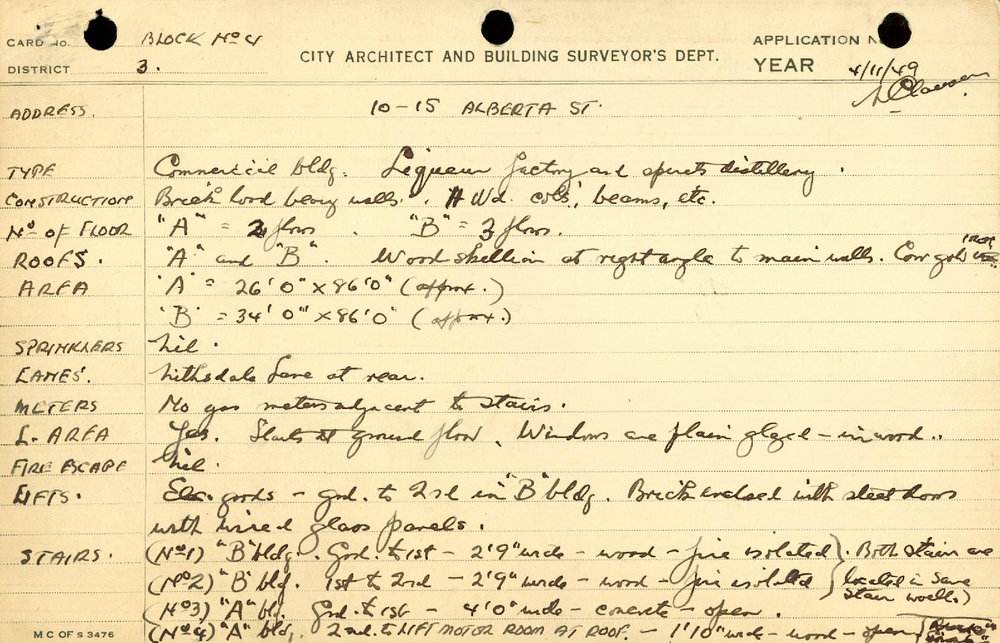 CARD No. BLOCK No 41
DISTRICT 3.
CITY ARCHITECT AND BUILDING SURVEYOR'S DEPT.
APPLICATION No.
YEAR 4/11/49
ADDRESS. 10-15 ALBERTA ST.
TYPE Commercial bldg. Liqueur factory and spirits distillery.
CONSTRUCTION Brick load bearg walls. H Wd. cols, beams, etc.
No OF FLOOR "A" = 2 floors. "B" = 3 floors.
ROOFS. "A" and "B". Wood skellion at right angle to main walls. Corr galv iron
AREA "A" = 26'0" x 86'0" (approx.)
"B" = 34'0" x 86'0" (approx.)
SPRINKLERS Nil.
LANES. Nithsdale Lane at rear.
METERS No gas meters adjacent to stairs.
L-AREA Yes. Starts at ground floor. Windows are plain glazed - in wood..
FIRE ESCAPE Nil.
LIFTS. Elec. goods - grd. to 2nd in "B" bldg. Brick enclosed with steel doors
with wired glass panels.
STAIRS. (No1) "B" bldg. Grd. to 1st - 2'9" wide - wood - fire isolated } Both stair are
(No2) "B" bld. 1st to 2nd - 2'9" wide - wood - fire isolated } located in same
stair wells.)
(No3) "A" bld. Grd. to 1st - 4'0" wide - concrete - open.
(No4) "A" bldg. 2nd. to LIFT MOTOR ROOM AT ROOF. - 1'10" wide - wood - open
M C OF S 3476